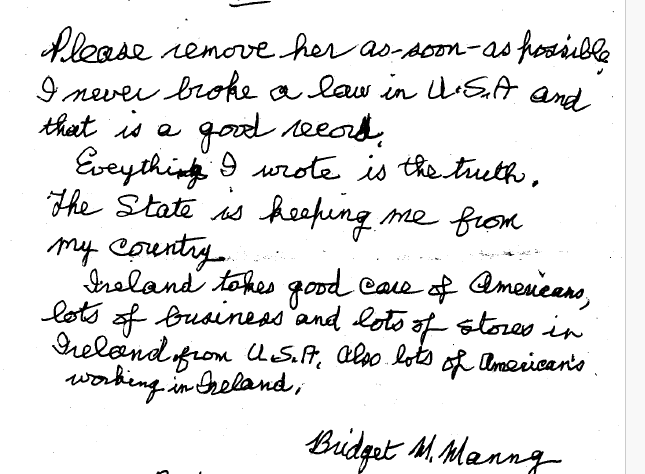 Please remove her as-soon-as possible
I never broke a law in U.S.A and
that is a good record.
Eveything I wrote is the truth.
The State is keeping me from
my country.
Ireland takes good care of Americans,
lots of business and lots of stores in
Ireland from U.S.A, also lots of American's
working in Ireland,
Bridget M. Manng